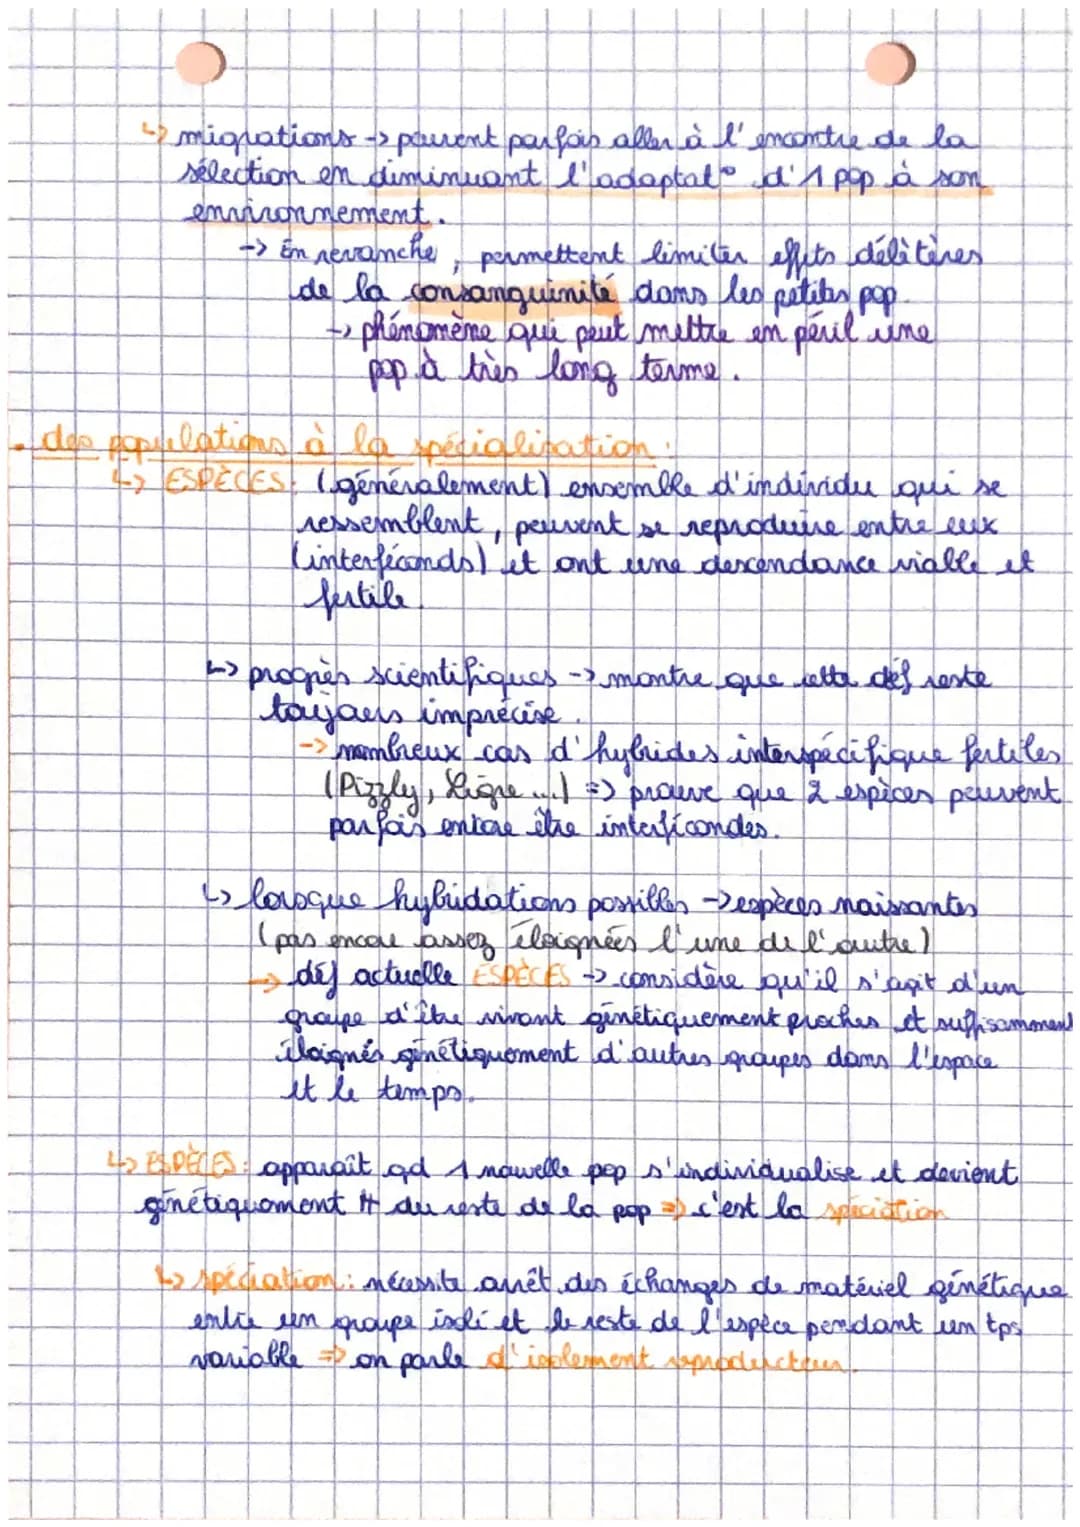 ↳ migrations -> peuvent parfois aller à l'encontre de la
sélection en diminuant l'adaptat° d'1 pop à son
environnement.
-> En revanche, permettent limiter effets délétères
de la consanguinité dans les petites pop.
-> phénomène qui peut mettre en péril une
pop à très long terme.
- des populations à la spécialisation :
↳ ESPÈCES : (généralement) ensemble d'individu qui se
ressemblent, peuvent se reproduire entre eux
(interféconds) et ont une descendance viable et
fertile.
↳ progrès scientifiques -> montre que cette déf reste
toujours imprécise.
-> nombreux cas d'hybrides interspécifique fertiles
(Pizzly, Ligre ...) => prouve que 2 espèces peuvent
parfois encore être interfécondes.
↳ lorsque hybridations possibles -> espèces naissantes
(pas encore assez éloignées l'une de l'autre)
-> déf actuelle ESPÈCES -> considère qu'il s'agit d'un
groupe d'être vivant génétiquement proches et suffisamment
éloignés génétiquement d'autres groupes dans l'espace
et le temps.
↳ ESPÈCES : apparaît qd 1 nouvelle pop s'individualise et devient
génétiquement ≠ du reste de la pop => c'est la spéciation
↳ spéciation : nécessite arrêt des échanges de matériel génétique
entre un groupe isolé et le reste de l'espèce pendant un tps
variable => on parle d'isolement reproducteur.